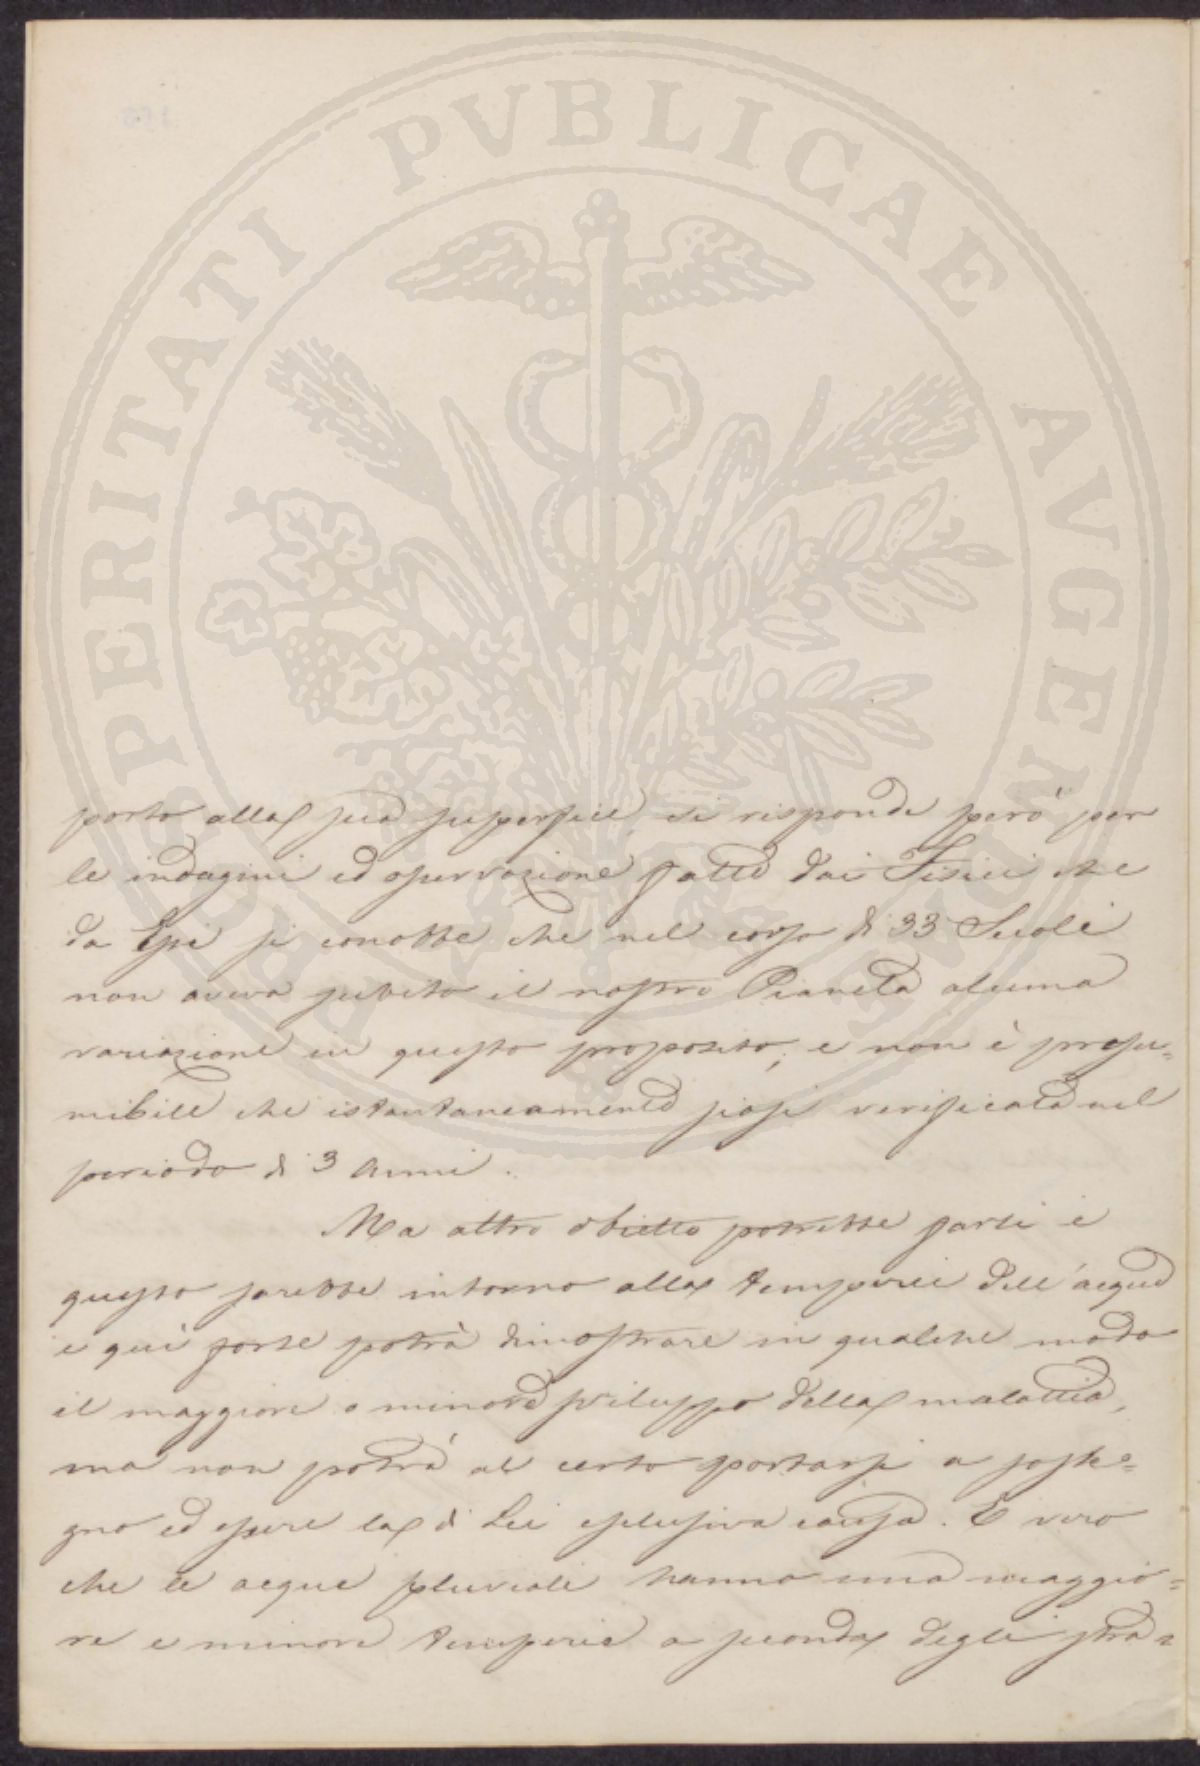 PROSPERITATI PVBLICAE AVGENDAE
porto alla sua superficie, si risponde però per
le indagini ed osservazione fatte dai Fisici che
da Essi si conobbe che nel corso di 33 Secoli
non aveva subito il nostro Pianeta alcuna
variazione in questo proposito; e non è presu=
mibile che istantaneamente siasi verificata nel
periodo di 3 Anni.
Ma altro obietto potrebbe farsi e
questo sarebbe intorno alla temperie dell'acqua
e qui forse potrà dimostrare in qualche modo
il maggiore o minore sviluppo della malattia,
ma non potrà al certo portarsi a soste=
gno ed essere la di Lei esclusiva causa. E vero
che le acque pluviali hanno una maggio=
re e minore temperie a seconda degli stra=